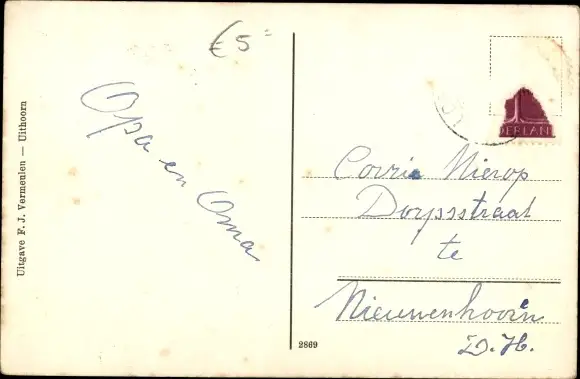 € 5=
Opa en Oma
Uitgave F. J. Vermeulen — Uithoorn
2869
Corrie Nierop
Dorpsstraat
te
Nieuwenhoorn
Z.H.